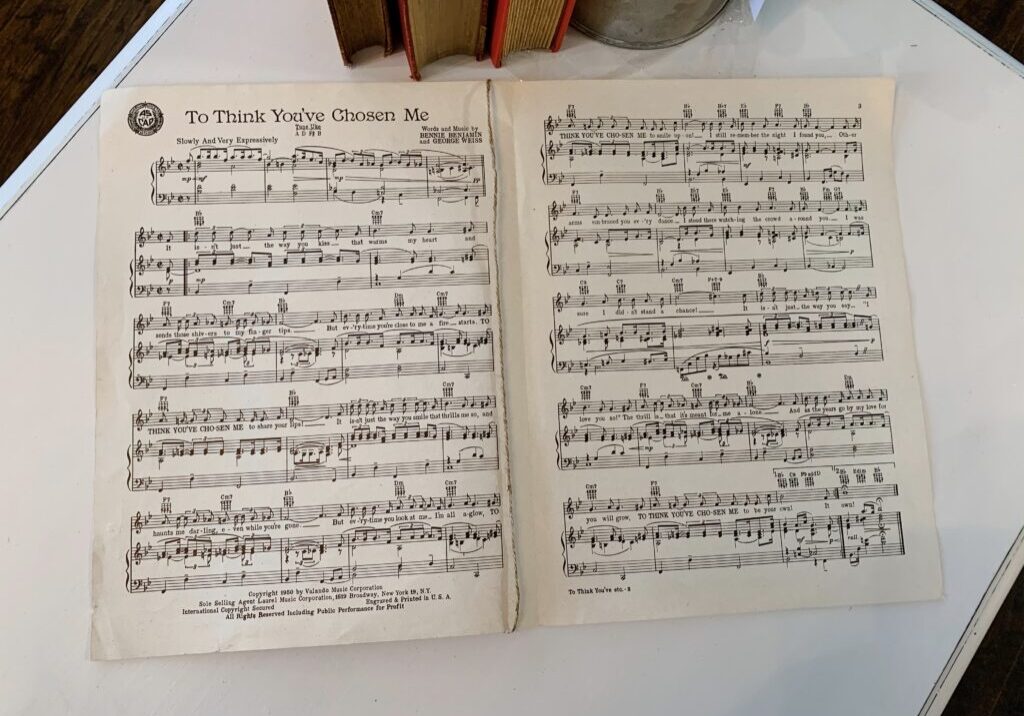 ASCAP
To Think You've Chosen Me
Tune Uke
A D F# B
Slowly And Very Expressively
Words and Music by
BENNIE BENJAMIN
and GEORGE WEISS
mp-mf mp pp
Bb Cm7
It is-n't just the way you kiss that warms my heart and
F7 Cm7 Bb Dm Cm7
sends those shiv-ers to my fin-ger tips. But ev-'ry-time you're close to me a fire starts, TO
F7 Bb Cm7
THINK YOU'VE CHO-SEN ME to share your lips! It is-n't just the way you smile that thrills me so, and
F7 Cm7 Bb Dm Cm7
haunts me dar-ling, e-ven while you're gone. But ev-'ry-time you look at me I'm all a-glow, TO
Copyright 1950 by Valando Music Corporation
Sole Selling Agent Laurel Music Corporation, 1619 Broadway, New York 19, N.Y.
International Copyright Secured Engraved & Printed in U.S.A.
All Rights Reserved Including Public Performance for Profit
3
THINK YOU'VE CHO-SEN ME to smile up-on! I still re-mem-ber the night I found you, Oth-er
arms em-braced you ev-'ry dance I stood there watch-ing the crowd a-round you. I was
sure I did-n't stand a chance! It is-n't just the way you say "I
love you so!" The thrill is that it's meant for me a-lone And as the years go by my love for
you will grow, TO THINK YOU'VE CHO-SEN ME to be your own! It own!
rall
To Think You've etc.-2